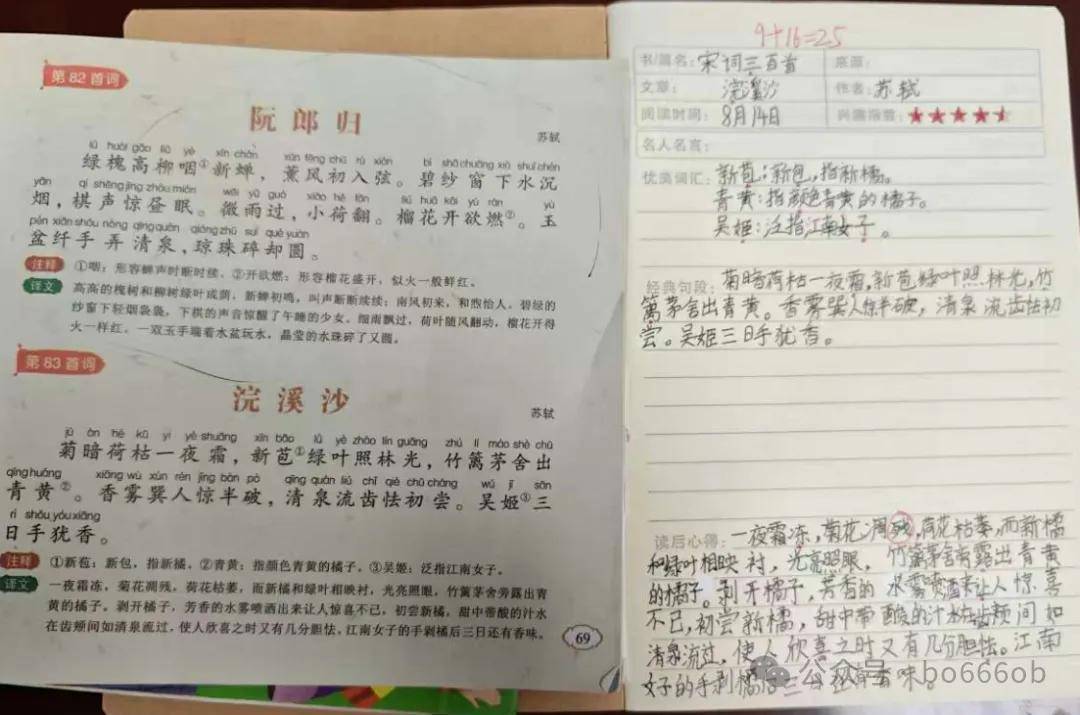 第82首词
阮郎归
苏轼
lǜ huái gāo liǔ yè xīn chán xūn fēng chū rù xián bì shā chuāng xià shuǐ chén
绿槐高柳咽①新蝉，薰风初入弦。碧纱窗下水沉
yān qí shēng jīng zhòu mián wēi yǔ guò xiǎo hé fān liú huā kāi yù rán yù
烟，棋声惊昼眠。微雨过，小荷翻。榴花开欲燃②。玉
pén xiān shǒu nòng qīng quán qióng zhū suì què yuán
盆纤手弄清泉，琼珠碎却圆。
注释 ①咽：形容蝉声时断时续。②开欲燃：形容榴花盛开，似火一般鲜红。
译文 高高的槐树和柳树绿叶成荫，新蝉初鸣，叫声断断续续；南风初来，和煦怡人，碧绿的
纱窗下轻烟袅袅，下棋的声音惊醒了午睡的少女。细雨飘过，荷叶随风翻动，榴花开得
火一样红。一双玉手端着水盆玩水，晶莹的水珠碎了又圆。
第83首词
浣溪沙
苏轼
jú àn hé kū yí yè shuāng xīn bāo lǜ yè zhào lín guāng zhú lí máo shè chū
菊暗荷枯一夜霜，新苞①绿叶照林光，竹篱茅舍出
qīng huáng xiāng wù xùn rén jīng bàn pò qīng quán liú chǐ qiè chū cháng wú jī sān
青黄②。香雾巽人惊半破，清泉流齿怯初尝。吴姬③三
rì shǒu yóu xiāng
日手犹香。
注释 ①新苞：新包，指新橘。②青黄：指颜色青黄的橘子。③吴姬：泛指江南女子。
译文 一夜霜冻，菊花凋残，荷花枯萎，而新橘和绿叶相映衬，光亮照眼，竹篱茅舍旁露出青
黄的橘子。剥开橘子，芳香的水雾喷洒出来让人惊喜不已，初尝新橘，甜中带酸的汁水
在齿颊间如清泉流过，使人欣喜之时又有几分胆怯。江南女子的手剥橘后三日还有香味。
69
9+16=25
书/篇名：宋词三百首
文章：浣溪沙 作者：苏轼
阅读时间：8月14日 兴趣指数：★★★★★
名人名言：
优美词汇：新苞：新包，指新橘。
青黄：指颜色青黄的橘子。
吴姬：泛指江南女子。
经典句段：菊暗荷枯一夜霜，新苞绿叶照林光，竹
篱茅舍出青黄。香雾巽人惊半破，清泉流齿怯初
尝。吴姬三日手犹香。
读后心得：一夜霜冻，菊花凋残，荷花枯萎，而新橘
和绿叶相映衬，光亮照眼，竹篱茅舍旁露出青黄
的橘子。剥开橘子，芳香的水雾喷洒来让人惊喜
不已，初尝新橘，甜中带酸的汁水在齿颊间如
清泉流过，使人欣喜之时又有几分胆怯。江南
女子的手剥橘后三日还有香味。
公众号·bo666ob